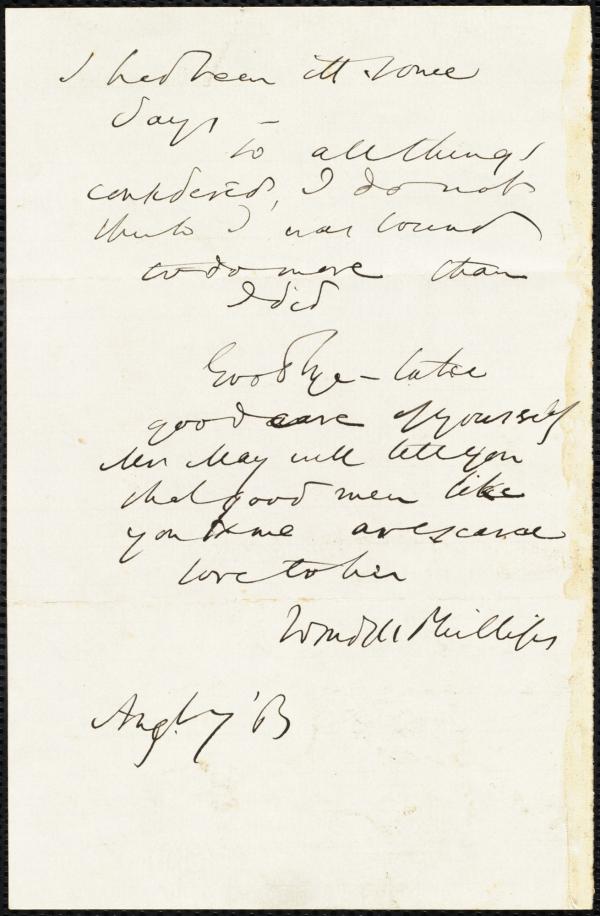 I had been ill some
days –
to all things
considered, I do not
think I was bound
to do more than
I did
Goodbye – take
good care of yourself
Mrs May will tell you
that good men like
you & me are scarce
love to her
Wendell Phillips
Aug.